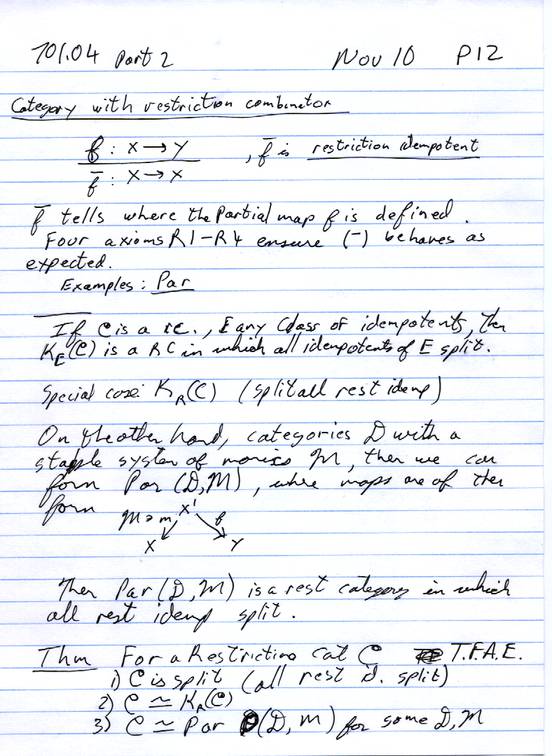 701.04 Part 2 Nov 10 P12
Category with restriction combinator
f : X → Y
f̄ : X → X , f̄ is restriction idempotent
f̄ tells where the Partial map f is defined.
Four axioms R1-R4 ensure (‾) behaves as
expected.
Examples : Par
If C is a rc., E any class of idempotents, then
K_E(C) is a RC in which all idempotents of E split.
Special case: K_R(C) (split all rest idemp)
On the other hand, categories D with a
stable system of monics M, then we can
form Par (D,M), where maps are of the
form
M∋m X' f
X Y
Then Par (D,M) is a rest category in which
all rest idemp split.
Thm For a Restriction cat C T.F.A.E.
1) C is split (all rest id. split)
2) C ≃ K_R(C)
3) C ≃ Par (D, M) for some D, M